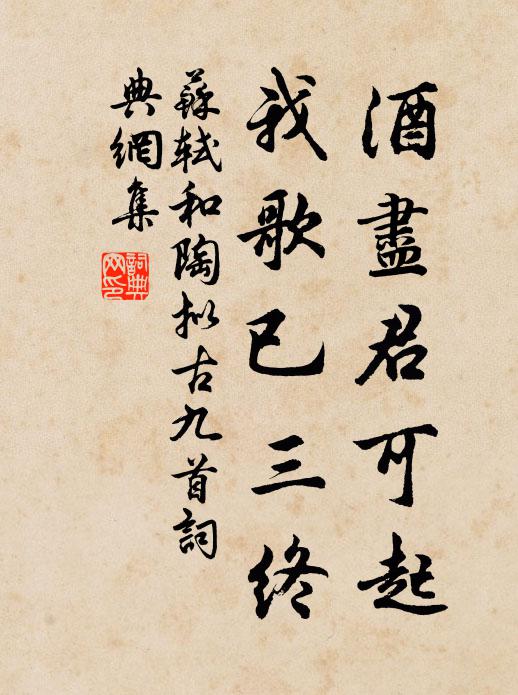 酒盡君可起
我歌已三終
蘇軾和陶拟古九首詞
典網集
詞典
网印